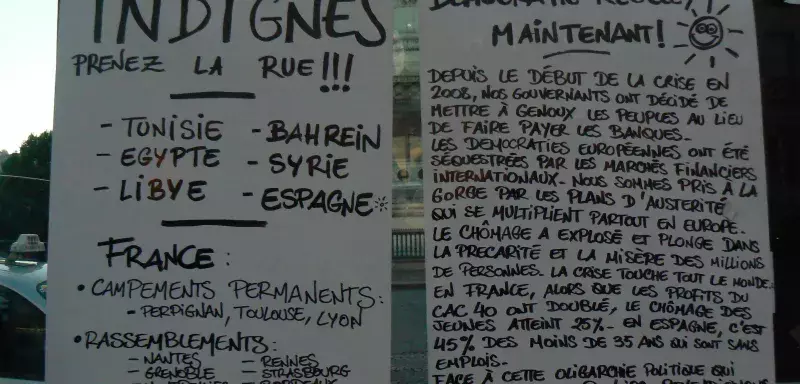 INDIGNÉS
PRENEZ LA RUE!!!
- TUNISIE
- EGYPTE
- LIBYE
- BAHREIN
- SYRIE
- ESPAGNE
FRANCE:
• CAMPEMENTS PERMANENTS:
- PERPIGNAN, TOULOUSE, LYON
• RASSEMBLEMENTS:
- NANTES
- GRENOBLE
- RENNES
- STRASBOURG
- BORDEAUX
DEMOCRATIE REELLE,
MAINTENANT!
DEPUIS LE DÉBUT DE LA CRISE EN
2008, NOS GOUVERNANTS ONT DÉCIDÉ DE
METTRE À GENOUX LES PEUPLES AU LIEU
DE FAIRE PAYER LES BANQUES.
LES DEMOCRATIES EUROPÉENNES ONT ÉTÉ
SÉQUESTRÉES PAR LES MARCHÉS FINANCIERS
INTERNATIONAUX. NOUS SOMMES PRIS À LA
GORGE PAR LES PLANS D'AUSTERITÉ
QUI SE MULTIPLIENT PARTOUT EN EUROPE.
LE CHÔMAGE A EXPLOSÉ ET PLONGE DANS
LA PRECARITÉ ET LA MISÈRE DES MILLIONS
DE PERSONNES. LA CRISE TOUCHE TOUT LE MONDE.
EN FRANCE, ALORS QUE LES PROFITS DU
CAC 40 ONT DOUBLÉ, LE CHÔMAGE DES
JEUNES ATTEINT 25%. EN ESPAGNE, C'EST
45% DES MOINS DE 35 ANS QUI SONT SANS
EMPLOIS.
FACE À CETTE OLIGARCHIE POLITIQUE QUI